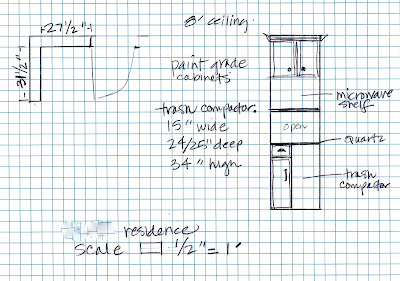 27 1/2"
8' ceiling.
31 1/2"
paint grade
cabinets
trash compactor.
15" wide
24/25" deep
34" high
microwave
shelf
open
quartz
trash
compactor
residence
scale 1/2" = 1'